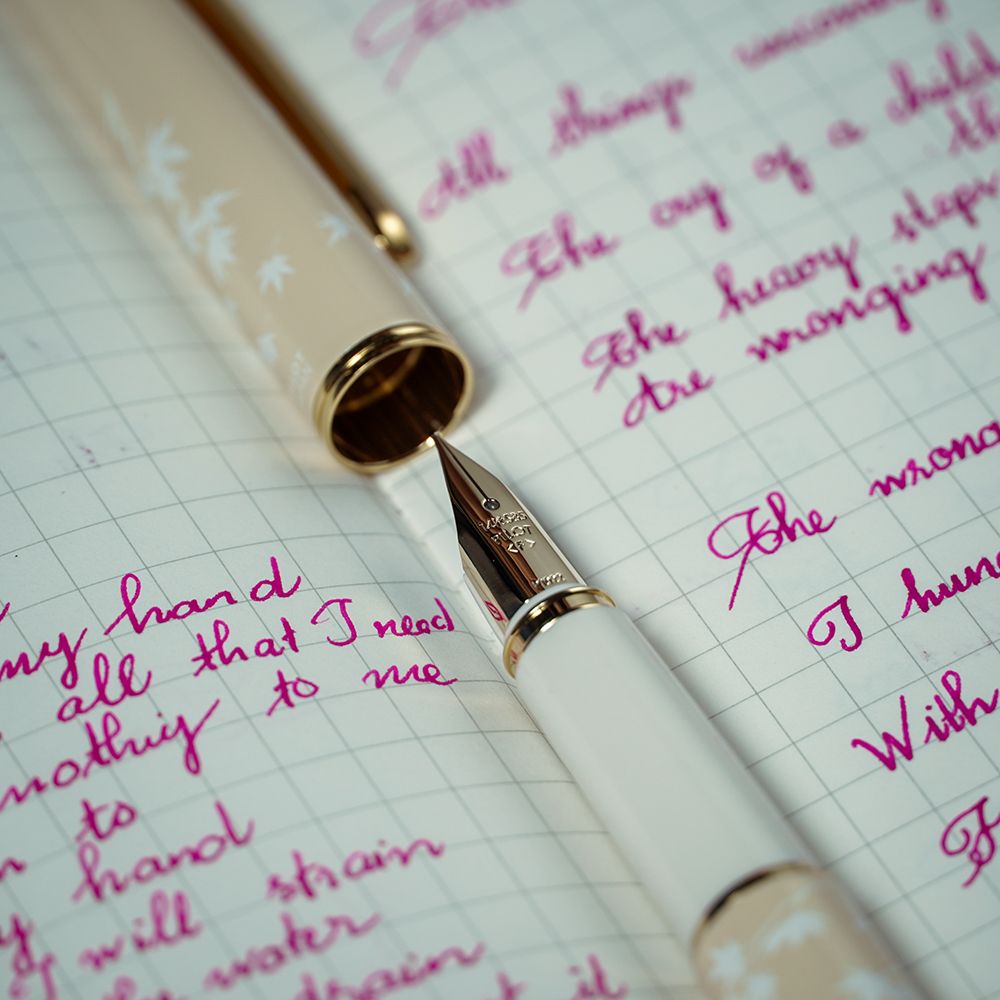 my hand
all that I need
nothig to me
to
hand
I will strain
the water
drain
it
The
All things
The cry of a child
The heavy steps
Are wronging
The wrong
I hun
With
14K585
PILOT
<F>